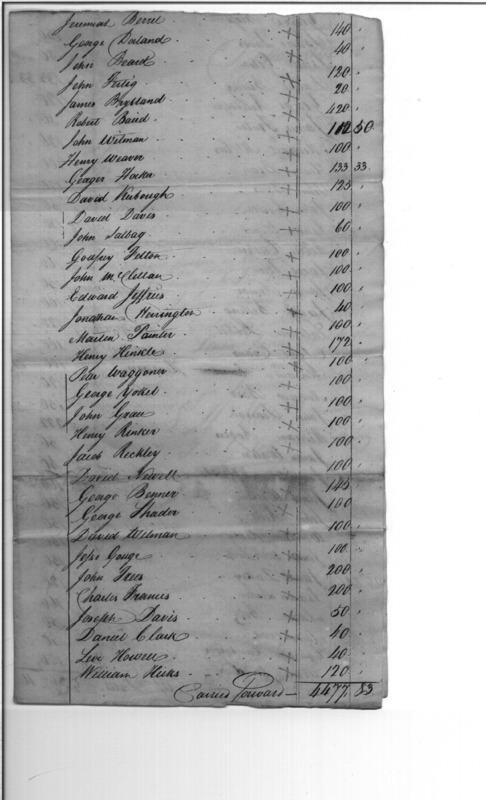 Jeremiah Berrel
George Dorland + 140
John Beard + 40
John Fertig + 120
James Brysland + 20
Robert Baird + 420
John Witman + 112 50
Henry Weaver + 100
George Hocker + 133 33
David Rubough + 125
David Davis + 100
John Salbag + 60
Godfrey Felton + 100
John McClellan + 100
Edward Jeffries + 100
Jonathan Herrington + 40
Martin Painter + 100
Henry Hinkle + 172
Peter Waggoner + 100
George Yokel + 100
John Grau + 100
Henry Renker + 100
Jacob Reckley + 100
David Newell + 100
George Benner + 145
George Shader + 100
David Witman + 100
Jesse Gouge + 100
John Frees + 200
Charles Francis + 200
Joseph Davis + 50
Daniel Clark + 40
Levi Howell + 40
William Hicks + 120
Carried Forward — 4477 83